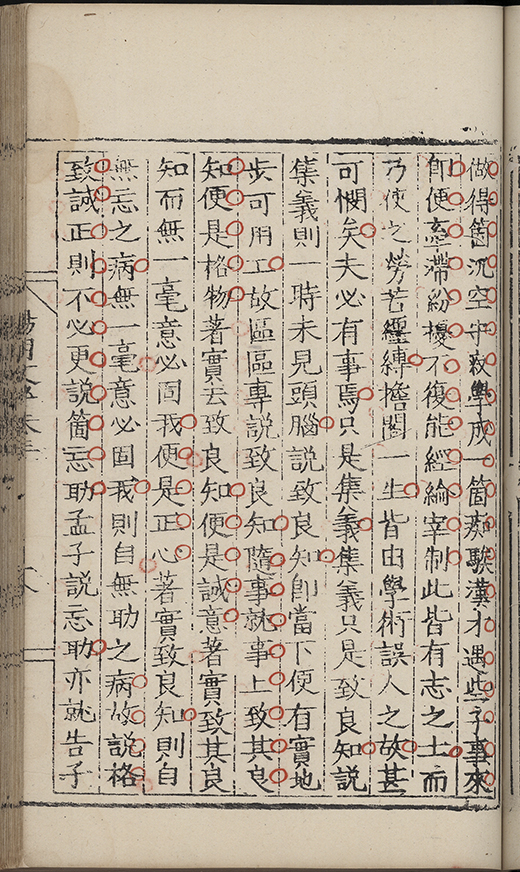 做得箇沉空守寂學成一箇痴騃漢才遇些子事來
卽便牽滯紛擾不復能經綸宰制此皆有志之士而
乃使之勞苦纏縛擔閣一生皆由學術誤人之故甚
可憫矣夫必有事焉只是集義集義只是致良知說
集義則一時未見頭腦說致良知卽當下便有實地
步可用工故區區專說致良知隨事就事上致其良
知便是格物著實去致良知便是誠意著實致其良
知而無一毫意必固我便是正心著實致良知則自
無忘之病無一毫意必固我則自無助之病故說格
致誠正則不必更說箇忘助孟子說忘助亦就告子